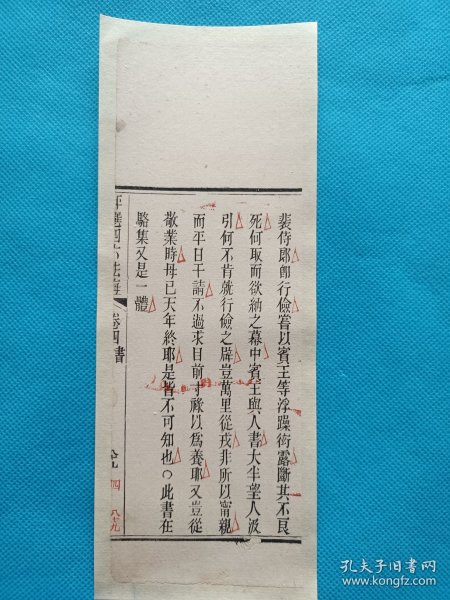 裴侍郎卽行儉嘗以賓王等浮躁衒露斷其不良
死何取而欲納之幕中賓王與人書大半望人汲
引何不肯就行儉之辟豈萬里從戎非所以甯親
而平日干請不過求目前寸祿以爲養耶又豈從
敬業時母已天年終耶是皆不可知也○此書在
駱集又是一體
卷四書
四
孔夫子旧书网
www.kongfz.com